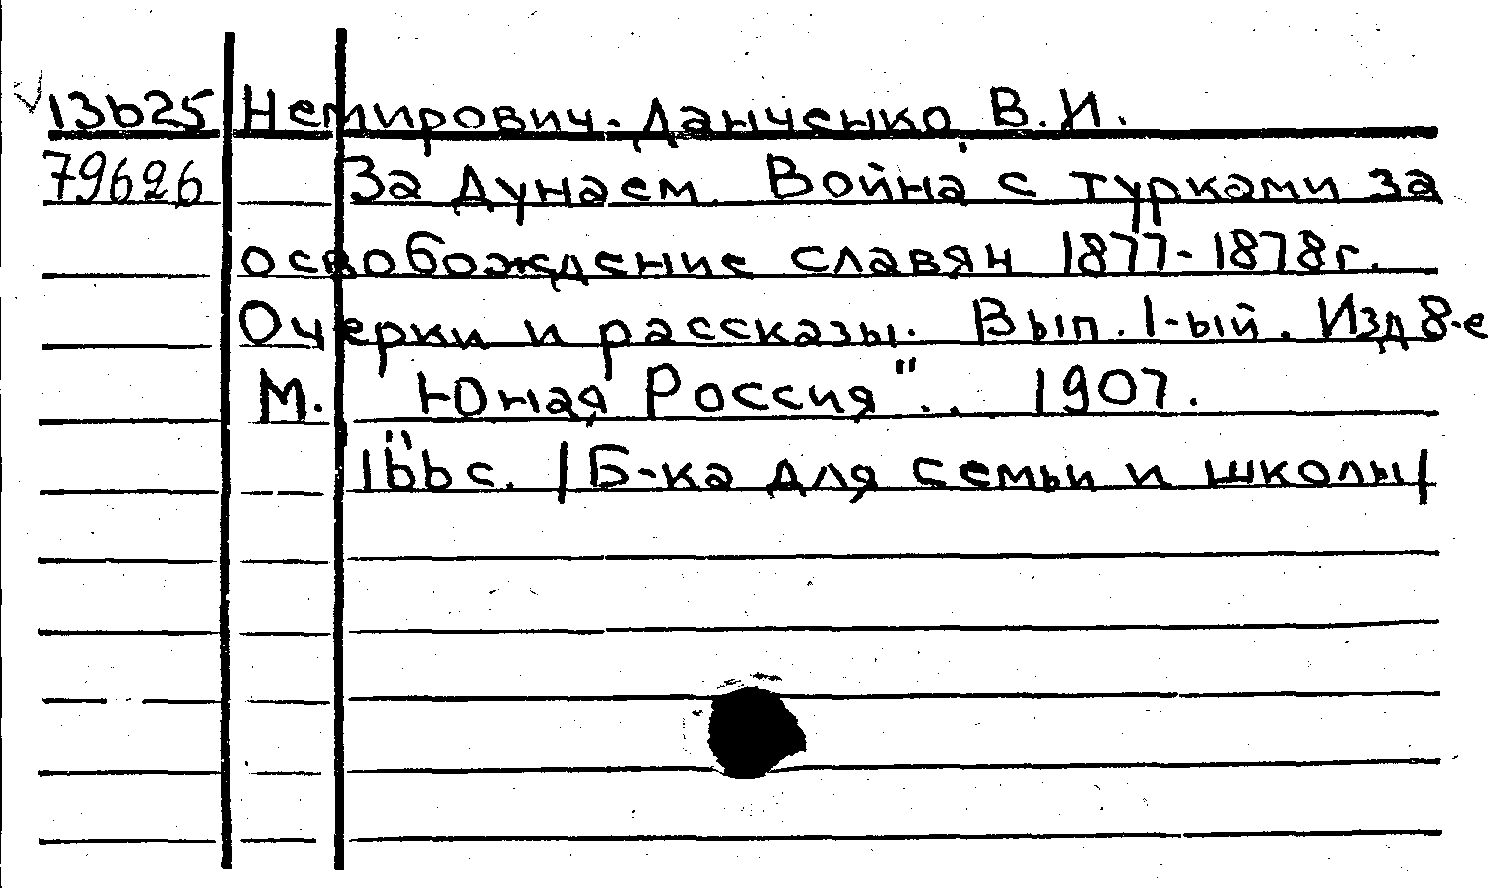 13625 Немирович-Данченко, В.И.
79626 За Дунаем. Война с турками за
освобождение славян 1877-1878г.
Очерки и рассказы. Вып. 1-ый. Изд 8-е
М. "Юная Россия". . 1907.
166 с. /Б-ка для семьи и школы/